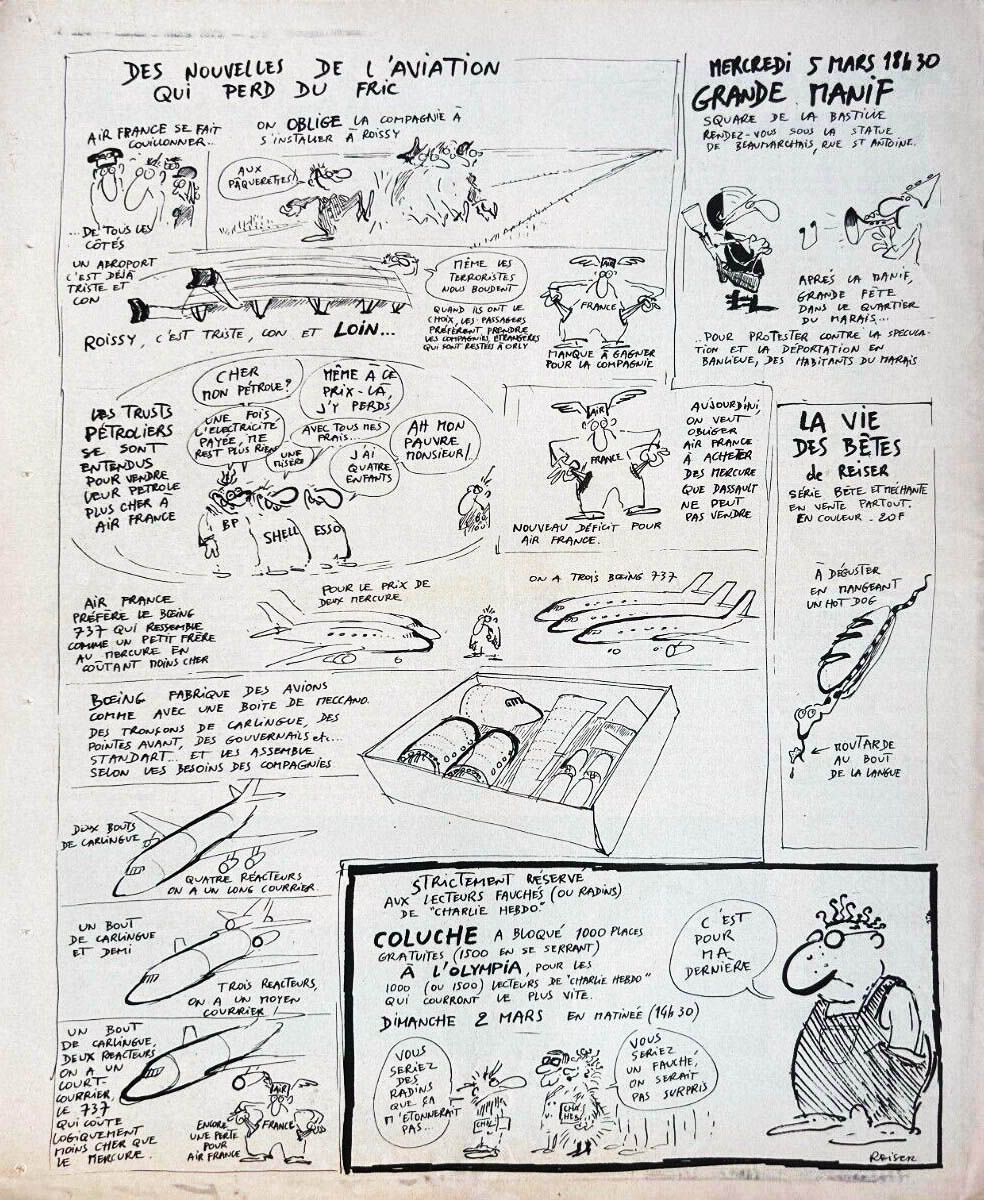 DES NOUVELLES DE L'AVIATION
QUI PERD DU FRIC
AIR FRANCE SE FAIT
COUILLONNER..
...DE TOUS LES
CÔTÉS
ON OBLIGE LA COMPAGNIE À
S'INSTALLER À ROISSY
AUX
PÂQUERETTES!
UN AEROPORT
C'EST DÉJÀ
TRISTE ET
CON
ROISSY, C'EST TRISTE, CON ET LOIN...
MÊME LES
TERRORISTES
NOUS BOUDENT
QUAND ILS ONT LE
CHOIX, LES PASSAGERS
PRÉFÈRENT PRENDRE
LES COMPAGNIES ETRANGERES
QUI SONT RESTÉES À ORLY
AIR
FRANCE
MANQUE À GAGNER
POUR LA COMPAGNIE
LES TRUSTS
PÉTROLIERS
SE SONT
ENTENDUS
POUR VENDRE
LEUR PETROLE
PLUS CHER À
AIR FRANCE
CHER
MON PÉTROLE?
MÊME À CE
PRIX-LÀ,
J'Y PERDS
UNE FOIS
L'ELECTRICITÉ
PAYÉE, NE
RESTE PLUS RIEN
AVEC TOUS MES
FRAIS...
UNE
MISÈRE
J'AI
QUATRE
ENFANTS
AH MON
PAUVRE
MONSIEUR!
BP
SHELL
ESSO
AIR
FRANCE
NOUVEAU DÉFICIT POUR
AIR FRANCE.
AUJOURD'HUI,
ON VEUT
OBLIGER
AIR FRANCE
À ACHETER
DES MERCURE
QUE DASSAULT
NE PEUT
PAS VENDRE
AIR FRANCE
PRÉFÈRE LE BOEING
737 QUI RESSEMBLE
COMME UN PETIT FRÈRE
AU MERCURE EN
COÛTANT MOINS CHER
POUR LE PRIX DE
DEUX MERCURE
ON A TROIS BOEING 737
BOEING FABRIQUE DES AVIONS
COMME AVEC UNE BOITE DE MECCANO.
DES TRONÇONS DE CARLINGUE, DES
POINTES AVANT, DES GOUVERNAILS etc...
STANDART... ET LES ASSEMBLE
SELON LES BESOINS DES COMPAGNIES
DEUX BOUTS
DE CARLINGUE
QUATRE RÉACTEURS
ON A UN LONG COURRIER.
UN BOUT
DE CARLINGUE
ET DEMI
TROIS REACTEURS,
ON A UN MOYEN
COURRIER!
UN BOUT
DE CARLINGUE,
DEUX REACTEURS
ON A UN
COURT-
COURRIER,
LE 737
QUI COÛTE
LOGIQUEMENT
MOINS CHER QUE
LE MERCURE.
AIR
FRANCE
ENCORE
UNE PERTE
POUR
AIR FRANCE
MERCREDI 5 MARS 18h30
GRANDE MANIF
SQUARE DE LA BASTILLE
RENDEZ-VOUS SOUS LA STATUE
DE BEAUMARCHAIS, RUE ST ANTOINE.
APRÈS LA MANIF,
GRANDE FÊTE
DANS LE QUARTIER
DU MARAIS...
..POUR PROTESTER CONTRE LA SPECULA-
TION ET LA DÉPORTATION EN
BANLIEUE, DES HABITANTS DU MARAIS
LA VIE
DES BÊTES
de REISER
SÉRIE BÊTE ET MÉCHANTE
EN VENTE PARTOUT.
EN COULEUR - 20F
À DÉGUSTER
EN MANGEANT
UN HOT DOG
MOUTARDE
AU BOUT
DE LA LANGUE
STRICTEMENT RÉSERVÉ
AUX LECTEURS FAUCHÉS (OU RADINS)
DE "CHARLIE HEBDO"
COLUCHE A BLOQUÉ 1000 PLACES
GRATUITES (1500 EN SE SERRANT)
À L'OLYMPIA, POUR LES
1000 (OU 1500) LECTEURS DE "CHARLIE HEBDO"
QUI COURRONT LE PLUS VITE.
DIMANCHE 2 MARS EN MATINEÉ (14h30)
C'EST
POUR
MA
DERNIÈRE
VOUS
SERIEZ
DES
RADINS
QUE ÇA
M'ETONNERAIT
PAS...
VOUS
SERIEZ
UN FAUCHÉ,
ON SERAIT
PAS SURPRIS
REISER